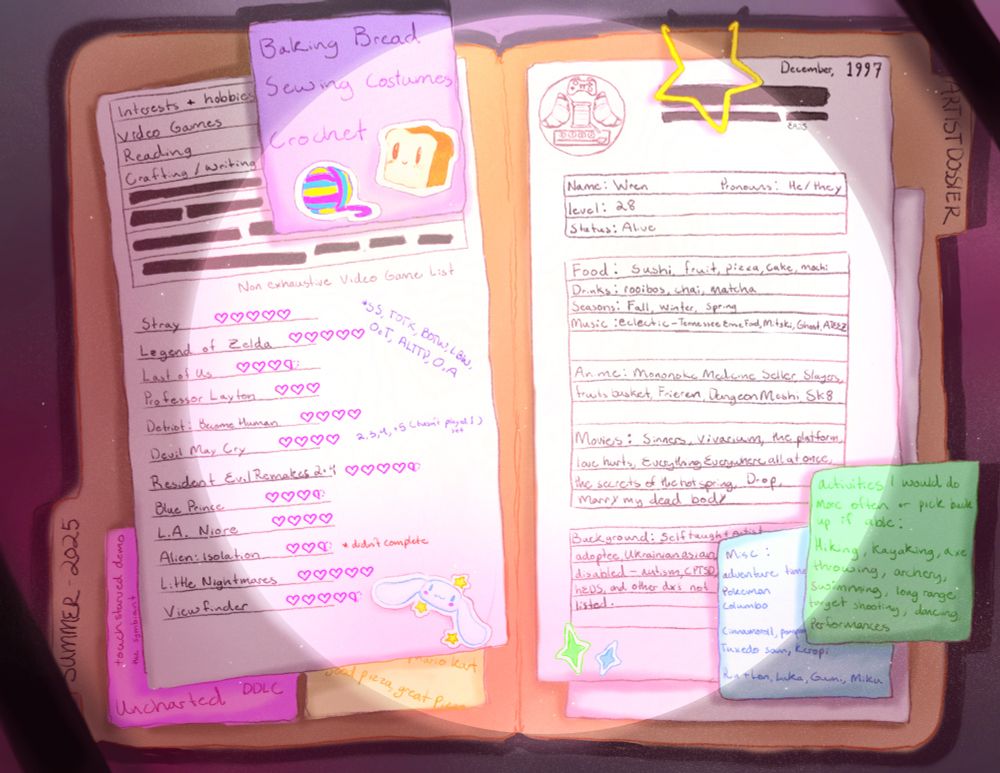 Baking Bread
Sewing Costumes
Crochet
Interests + hobbies
Video Games
Reading
Crafting / writing
Non exhaustive Video Game List
Stray
Legend of Zelda
*SS, TOTK, BOTW, LBW,
OoT, ALTTP, O, A
Last of Us
Professor Layton
Detriot: Become Human
Devil May Cry
2,3,4,+5 (haven't played 1)
yet
Resident Evil Remakes 2+4
Blue Prince
L.A. Niore
Alien: Isolation
*didn't complete
Little Nightmares
Viewfinder
SUMMER-2025
touchstarved demo
the symbiant
Uncharted
DDLC
Mario Kart
good pizza, great
ARTIST DOSSIER
December, 1997
Name: Wren
Pronouns: He/they
level: 28
Status: Alive
Food: Sushi, fruit, pizza, cake, mochi
Drinks: rooibos, chai, matcha
Seasons: Fall, winter, spring
Music: eclectic - Tennessee Ernie Ford, Mitski, Ghost, ATEEZ
Anime: Mononoke Medicine Seller, Slayers,
fruits basket, Frieren, Dungeon Meshi, SK8
Movies: Sinners, Vivarium, the platform,
love hurts, Everything Everywhere all at once,
the secrets of the hot spring, D-op,
Marry my dead body
Background: Self taught artist
adoptee, Ukrainian asian,
disabled - autism, CPTSD,
hEDS, and other dxs not
listed.
Misc:
adventure time
Pokemon
Columbo
Cinnamoroll,
Tuxedo sam, Keropi
Luka, Gumi, Miku
activities I would do
more often or pick back
up if able:
Hiking, Kayaking, axe
throwing, archery,
swimming, long range
target shooting, dancing,
Performances